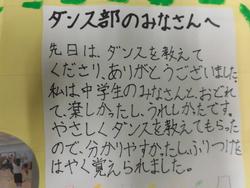 ダンス部のみなさんへ
先日は、ダンスを教えて
くださり、ありがとうございました。
私は中学生のみなさんと、おどれ
て、楽しかったし、うれしかたです。
やさしくダンスを教えてもらった
ので、分かりやすかたし、ふりつけを
はやく覚えられました。